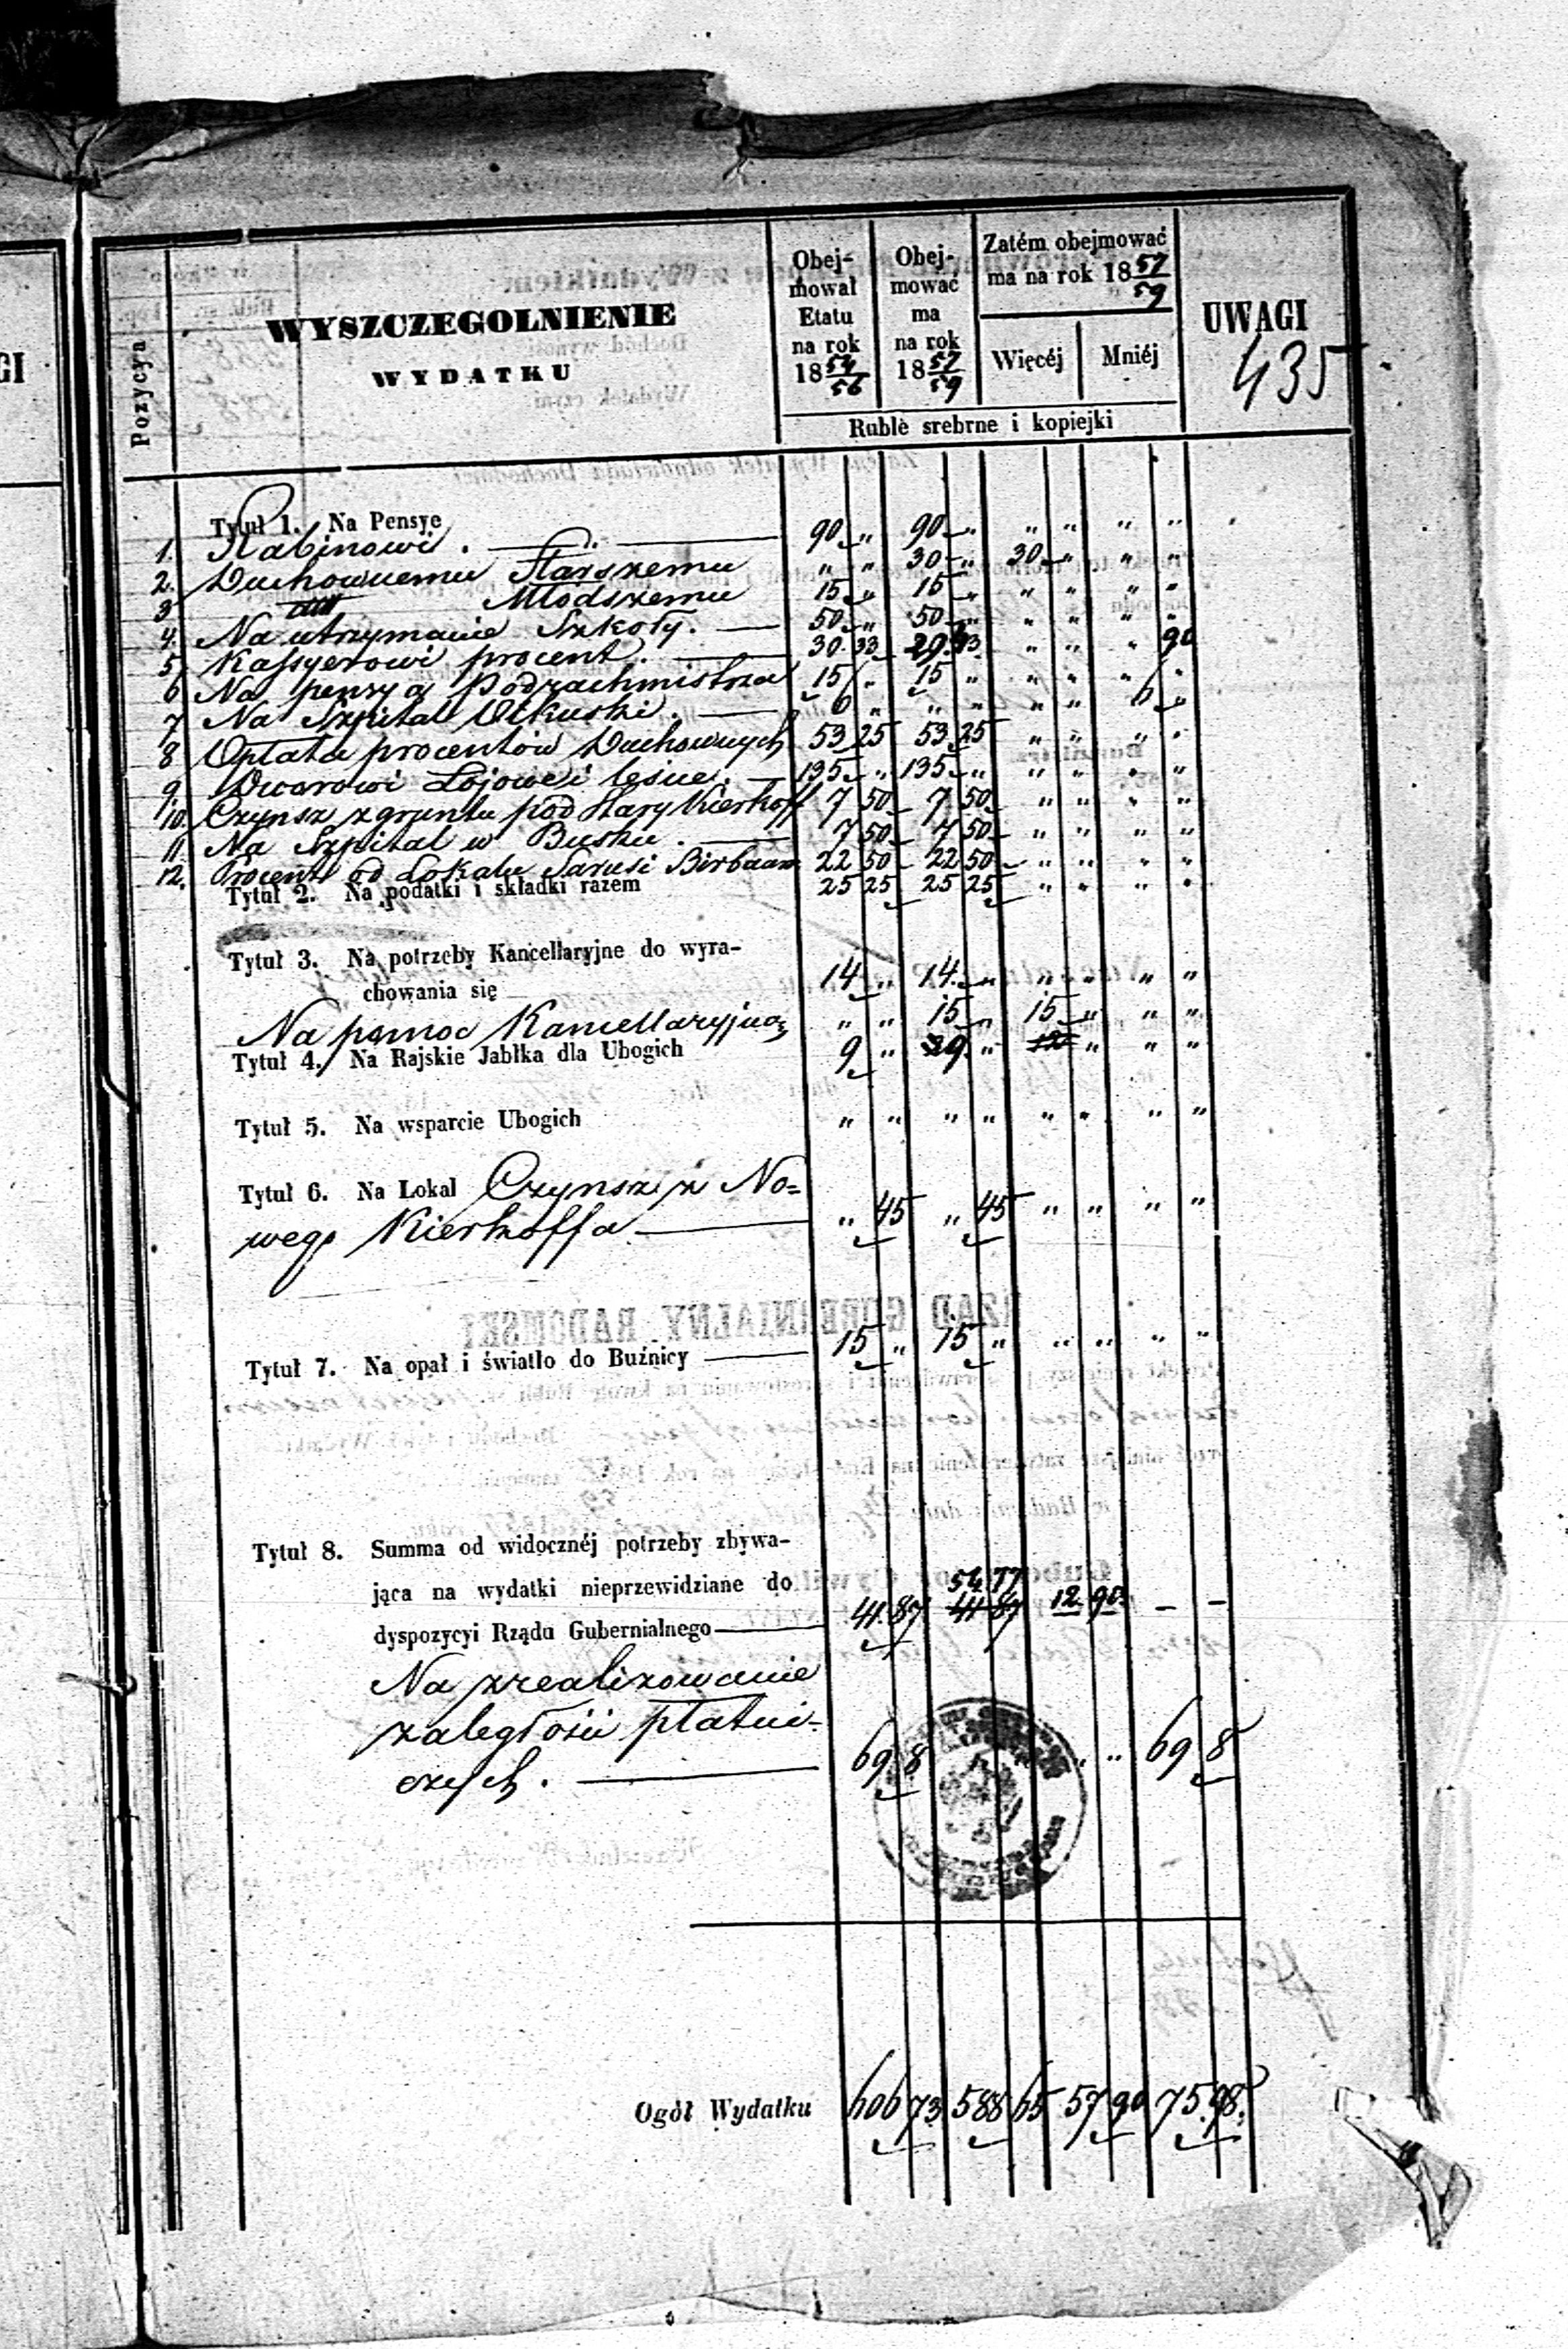 GI
Pozycya
WYSZCZEGOLNIENIE
WYDATKU
Obej-
mował
Etatu
na rok
18 54/56
Obej-
mować
ma
na rok
18 57/59
Zatém obejmować
ma na rok 18 57/59
Więcéj
Mniéj
UWAGI
435
Rublè srebrne i kopiejki
Tytuł 1. Na Pensye
1. Rabinowi . 90 „ 90 „ „ „ „ „
2. Duchownemu Starszemu „ „ 30 „ 30 „ „ „
3 Młodszemu 15 „ 15 „ „ „ „ „
4. Na utrzymanie Szkoły. 50 „ 50 „ „ „ „ „
5 Kassyerowi procent. 30 33 29 43 „ „ „ 90
6 Na pensyą Podrachmistrza 15 „ 15 „ „ „ „ „
7 Na Szpital Olkuski. 6 „ „ „ „ „ 6 „
8 Opłata procentów Duchownych 53 25 53 25 „ „ „ „
9 Dworowi Łojowe i leśne. 135 „ 135 „ „ „ „ „
10. Czynsz z gruntu pod Stary Kierkoff 7 50 7 50 „ „ „ „
11 Na Szpital w Busku. 7 50 7 50 „ „ „ „
12. Procent od Lokalu 22 50 22 50 „ „ „ „
Tytuł 2. Na podatki i składki razem 25 25 25 25 „ „ „ „
Tytuł 3. Na potrzeby Kancellaryjne do wyra-
chowania się 14 „ 14 „ „ „ „ „
Na pomoc Kancellaryjną „ „ 15 „ 15 „ „ „
Tytuł 4. Na Rajskie Jabłka dla Ubogich 9 „ 9 „ „ „ „
Tytuł 5. Na wsparcie Ubogich „ „ „ „ „ „ „ „
Tytuł 6. Na Lokal Czynsz z No=
wego Kierkoffa „ 45 „ 45 „ „ „ „
RZĄD GUBERNIALNY RADOMSKI
Tytuł 7. Na opał i światło do Buźnicy 15 „ 15 „ „ „ „ „
Tytuł 8. Summa od widocznéj potrzeby zbywa-
jąca na wydatki nieprzewidziane do 54 77
dyspozycyi Rządu Gubernialnego 41 87 41 87 12 90 – –
Na zrealizowanie
zaległości płatni-
czych. 69 8 „ „ 69 8
Ogół Wydatku 606 73 588 65 57 90 75 98